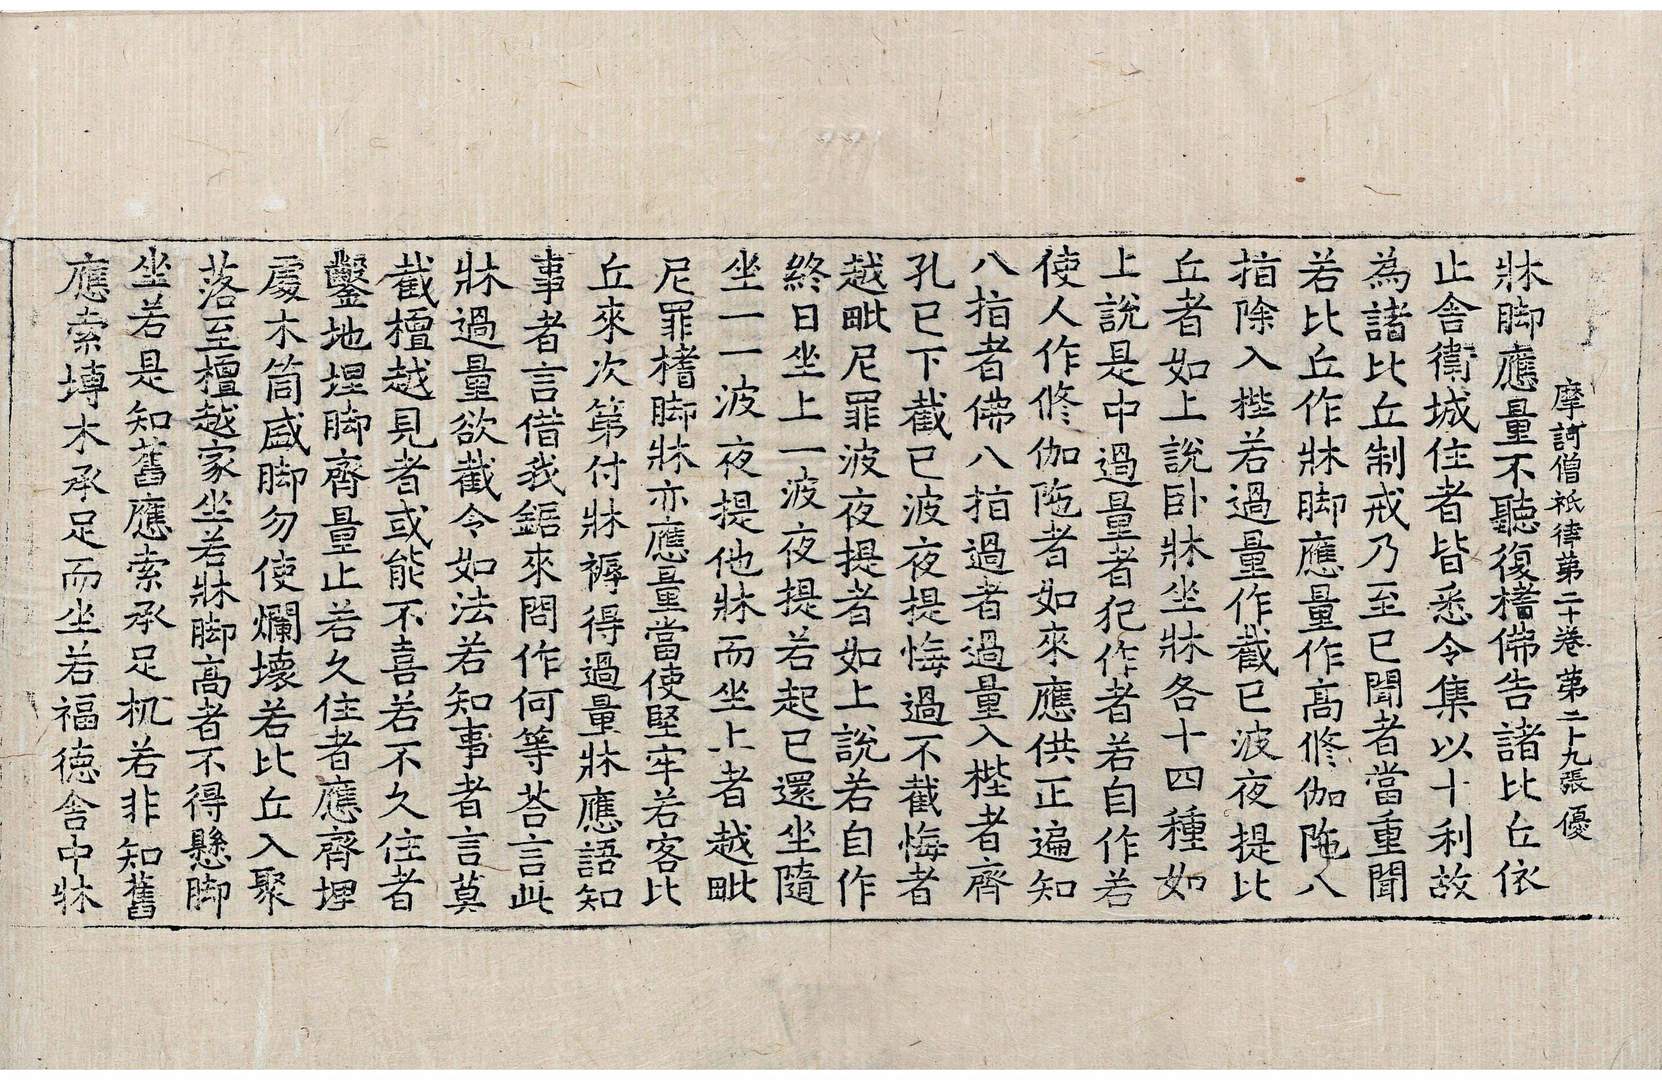 摩訶僧祇律第二十卷 第二十九張 優
牀脚應量不聽復榰佛告諸比丘依
止舍衛城住者皆悉令集以十利故
為諸比丘制戒乃至已聞者當重聞
若比丘作牀脚應量作高修伽陁八
指除入梐若過量作截已波夜提比
丘者如上說卧牀坐牀各十四種如
上說是中過量者犯作者若自作若
使人作修伽陁者如來應供正遍知
八指者佛八指過者過量入梐者齊
孔已下截已波夜提悔過不截悔者
越毗尼罪波夜提者如上說若自作
終日坐上一波夜提若起已還坐隨
坐一一波夜提他牀而坐上者越毗
尼罪榰脚牀亦應量當使堅牢若客比
丘來次第付牀褥得過量牀應語知
事者言借我鋸來問作何等荅言此
牀過量欲截令如法若知事者言莫
截檀越見者或能不喜若不久住者
鑿地埋脚齊量止若久住者應齊埋
䖏木筒盛脚勿使爛壞若比丘入聚
落至檀越家坐若牀脚高者不得懸脚
坐若是知舊應索承足机若非知舊
應索塼木承足而坐若福德舍中牀